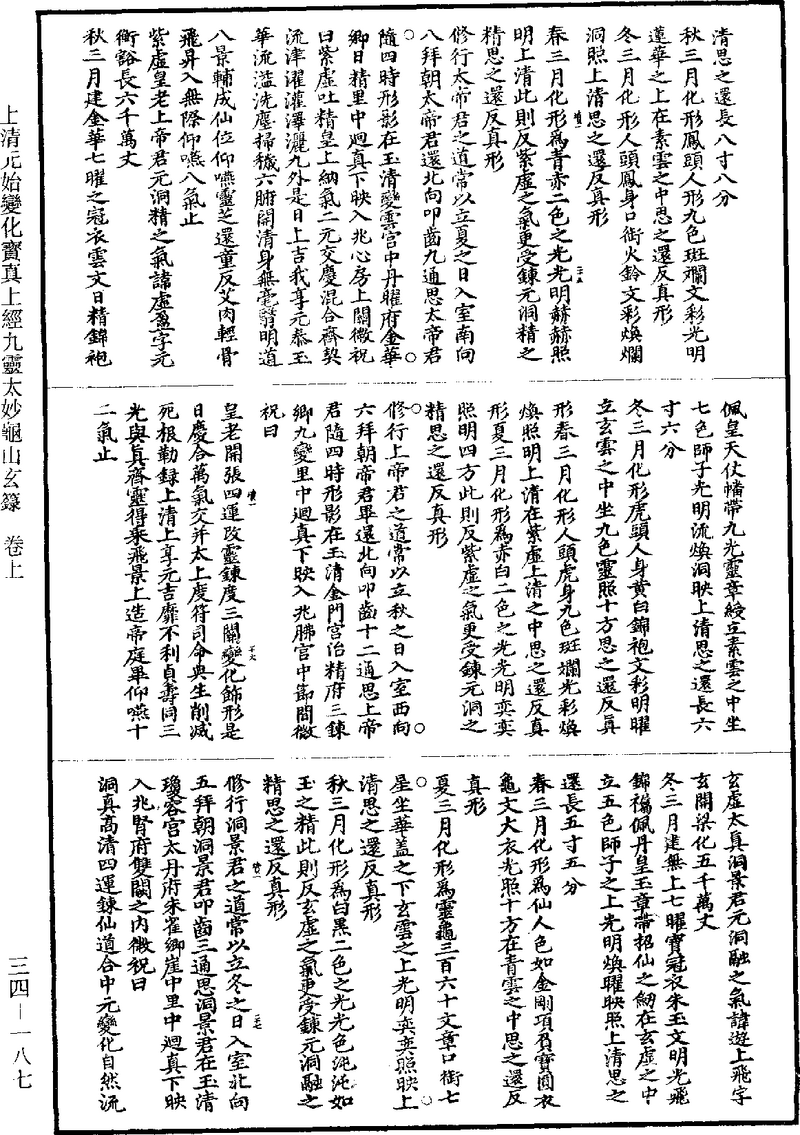 清思之還長八寸八分
秋三月化形鳳頭人形九色斑斕文彩光明
蓮華之上在素雲之中思之還反真形
冬三月化形人頭鳳身口銜火鈴文彩煥爛
洞照上清思之還反真形
春三月化形為青赤二色之光光明赫赫照
明上清此則反紫虛之氣更受鍊元洞精之
精思之還反真形
修行太帝君之道常以立夏之日入室南向
八拜朝太帝君還北向叩齒九通思太帝君
隨四時形影在玉清變雲宮中丹曜府金華
鄉日精里中迴真下映入兆心房上關微祝
曰紫虛吐精皇上納氣二元交慶混合齊契
流津濯灌澤灑九外是日上吉我享元泰玉
華流溢洗塵掃穢六腑開清身無毫翳明道
八景輔成仙位仰嚥靈芝還童反艾肉輕骨
飛昇入無際仰嚥八氣止
紫虛皇老上帝君元洞精之氣諱虛盈字元
衝豁長六千萬丈
秋三月建金華七曜之冠衣雲文日精錦袍
佩皇天仗幡帶九光靈章綬立素雲之中坐
七色師子光明流煥洞映上清思之還長六
寸六分
冬三月化形虎頭人身黃白錦袍文彩明曜
立玄雲之中坐九色靈照十方思之還反真
形春三月化形人頭虎身九色斑斕光彩煥
煥照明上清在紫虛上清之中思之還反真
形夏三月化形為赤白二色之光光明奕奕
照明四方此則反紫虛之氣更受鍊元洞之
精思之還反真形
修行上帝君之道常以立秋之日入室西向
六拜朝帝君畢還北向叩齒十二通思上帝
君隨四時形影在玉清金門宮治精府三鍊
鄉九變里中迴真下映入兆胇宮中節間微
祝曰
皇老開張四運改靈鍊度三關變化飾形是
日慶合萬氣交并太上度符司命與生削滅
死根勒錄上清上享元吉靡不利貞壽同三
光與真齊靈得乘飛景上造帝庭畢仰嚥十
二氣止
玄虛太真洞景君元洞融之氣諱遊上飛字
玄開梁化五千萬丈
冬三月建無上七曜寶冠衣朱玉文明光飛
錦襦佩丹皇玉章帶招仙之劒在玄虛之中
立五色師子之上光明煥曜映照上清思之
還長五寸五分
春三月化形為仙人色如金剛項負寶圓衣
龜文大衣光照十方在青雲之中思之還反
真形
夏三月化形為靈龜三百六十文章口銜七
星坐華蓋之下玄雲之上光明奕奕照映上
清思之還反真形
秋三月化形為白黑二色之光光色沌沌如
玉之精此則反玄虛之氣更受鍊元洞融之
精思之還反真形
修行洞景君之道常以立冬之日入室北向
五拜朝洞景君叩齒三通思洞景君在玉清
瓊容宮太丹府朱雀鄉崖中里中迴真下映
入兆腎府雙闕之內微祝曰
洞真高清四運鍊仙道合中元變化自然流
上清元始變化寶真上經九靈太妙龜山玄籙　卷上
三四—一八七